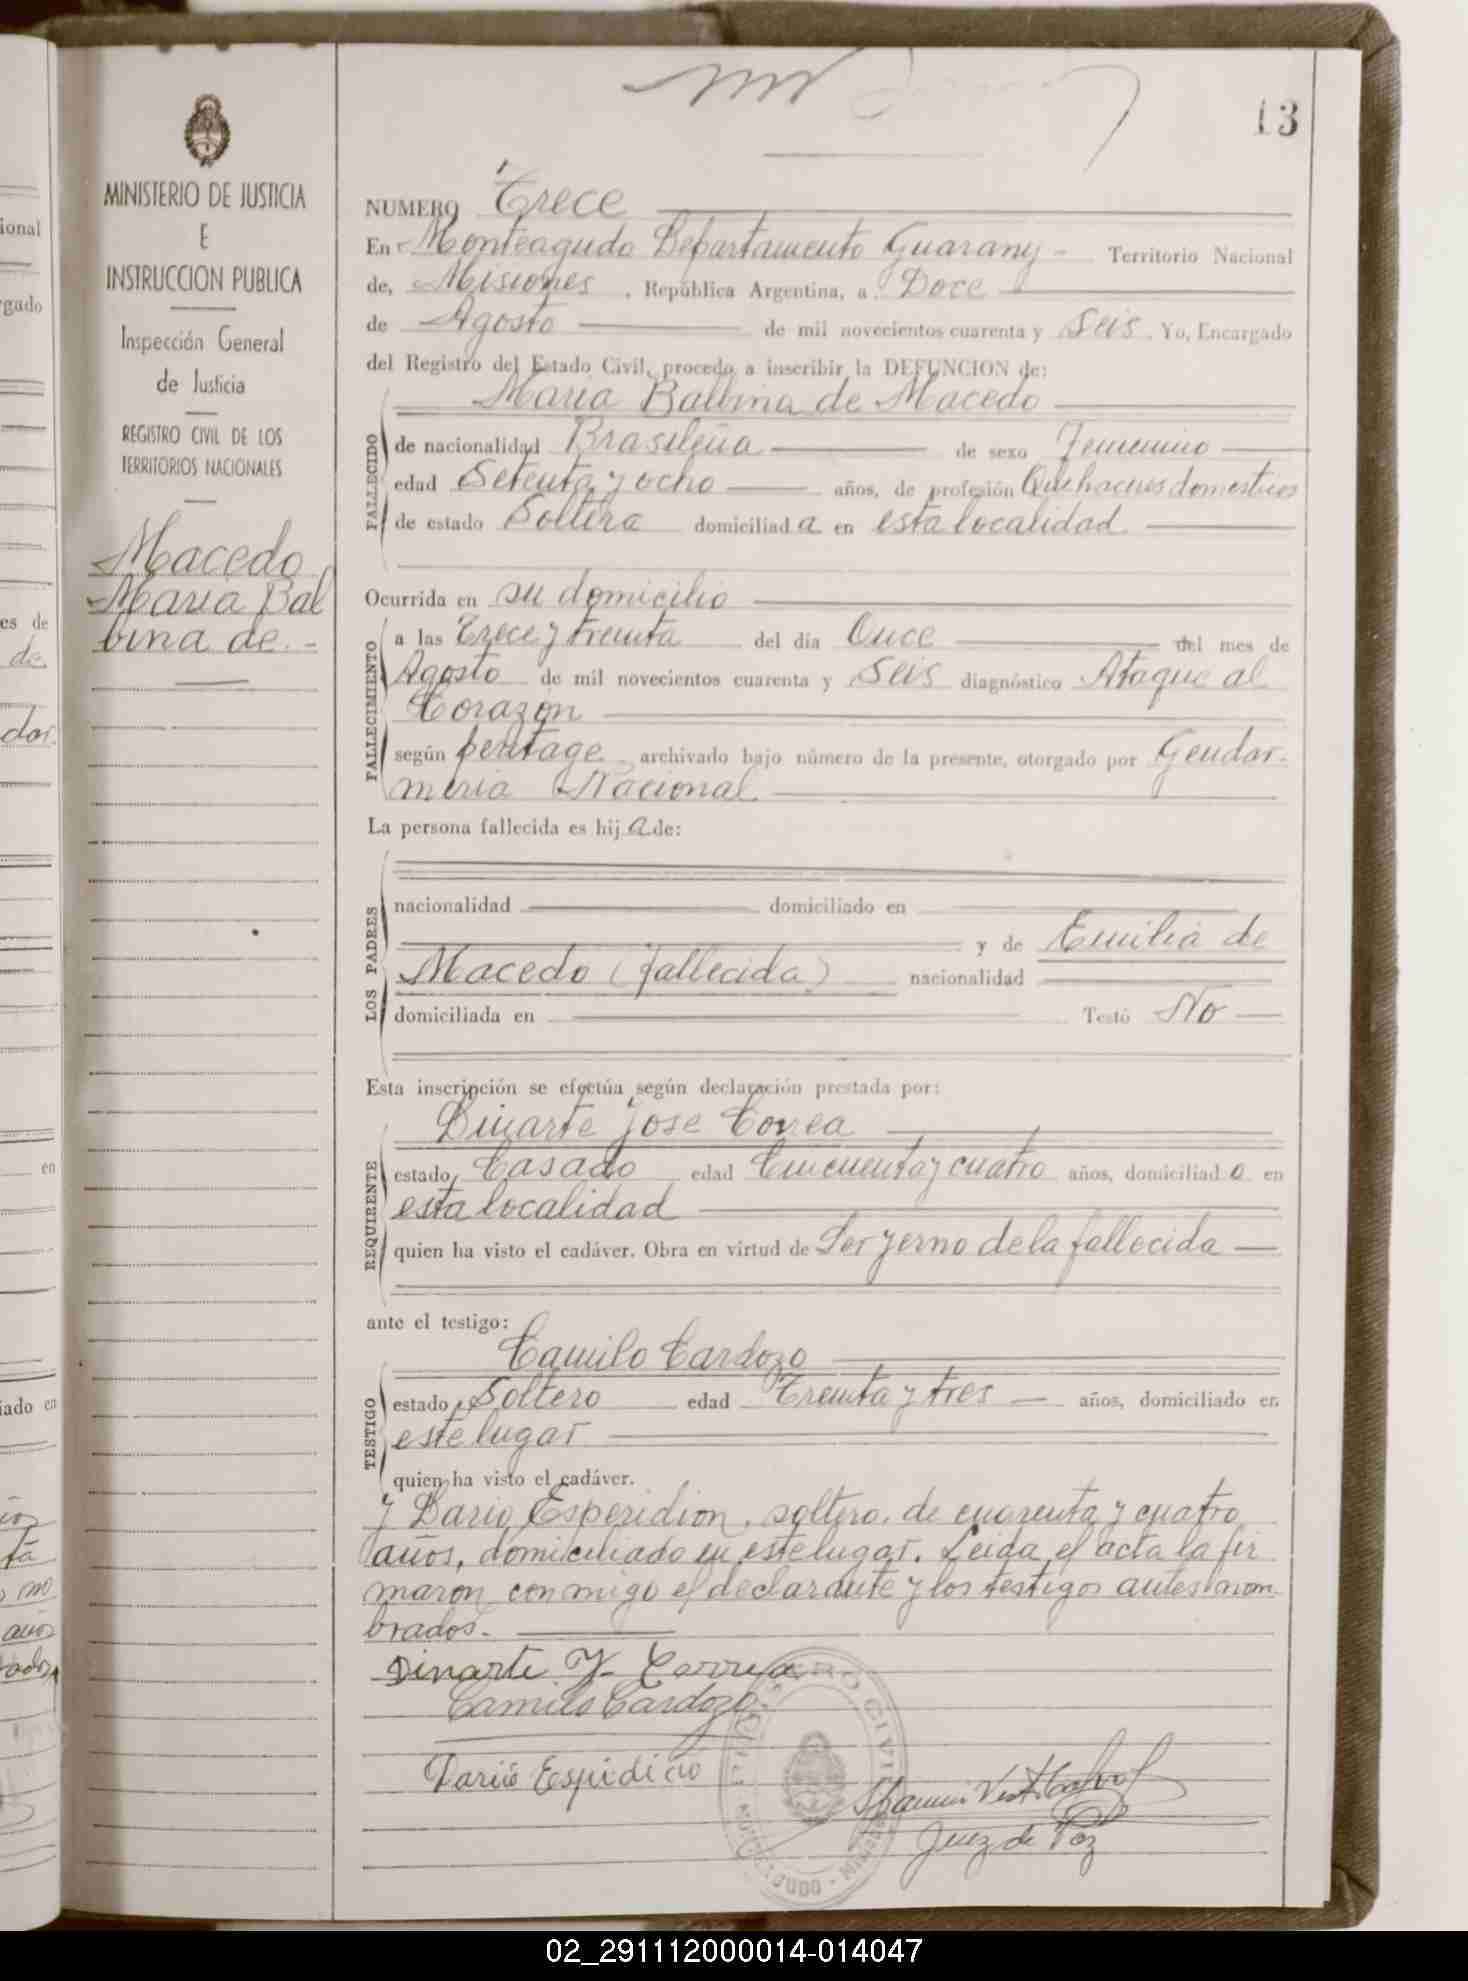 13
MINISTERIO DE JUSTICIA
E
INSTRUCCION PUBLICA
Inspección General
de Justicia
REGISTRO CIVIL DE LOS
TERRITORIOS NACIONALES
Macedo
Maria Bal
bina de.-
NUMERO Trece
En Monteagudo Departamento Guarany - Territorio Nacional
de, Misiones, República Argentina, a Doce
de Agosto de mil novecientos cuarenta y Seis. Yo, Encargado
del Registro del Estado Civil, procedo a inscribir la DEFUNCION de:
Maria Balbina de Macedo
FALLECIDO
de nacionalidad Brasileña de sexo Femenino
edad Setenta y ocho años, de profesión Quehaceres domesticos
de estado Soltera domiciliada en esta localidad
Ocurrida en su domicilio
FALLECIMIENTO
a las Trece y treinta del día Once del mes de
Agosto de mil novecientos cuarenta y Seis diagnóstico Ataque al
Corazon
según peritage archivado bajo número de la presente, otorgado por Gendar-
meria Nacional
La persona fallecida es hija de:
LOS PADRES
nacionalidad domiciliado en
y de Emilia de
Macedo (fallecida) nacionalidad
domiciliada en Testó No
Esta inscripción se efectúa según declaración prestada por:
Dinarte Jose Correa
REQUIRENTE
estado Casado edad Cincuenta y cuatro años, domiciliado en
esta localidad
quien ha visto el cadáver. Obra en virtud de Ser yerno de la fallecida
ante el testigo:
Camilo Cardozo
TESTIGO
estado Soltero edad Treinta y tres años, domiciliado en
este lugar
quien ha visto el cadáver.
y Dario Esperidion, soltero, de cuarenta y cuatro
años, domiciliado en este lugar. Leida el acta la fir
maron conmigo el declarante y los testigos antes nom-
brados.-
Dinarte J. Correa
Camilo Cardozo
Dario Espidicio
Juez de Paz
02_291112000014-014047